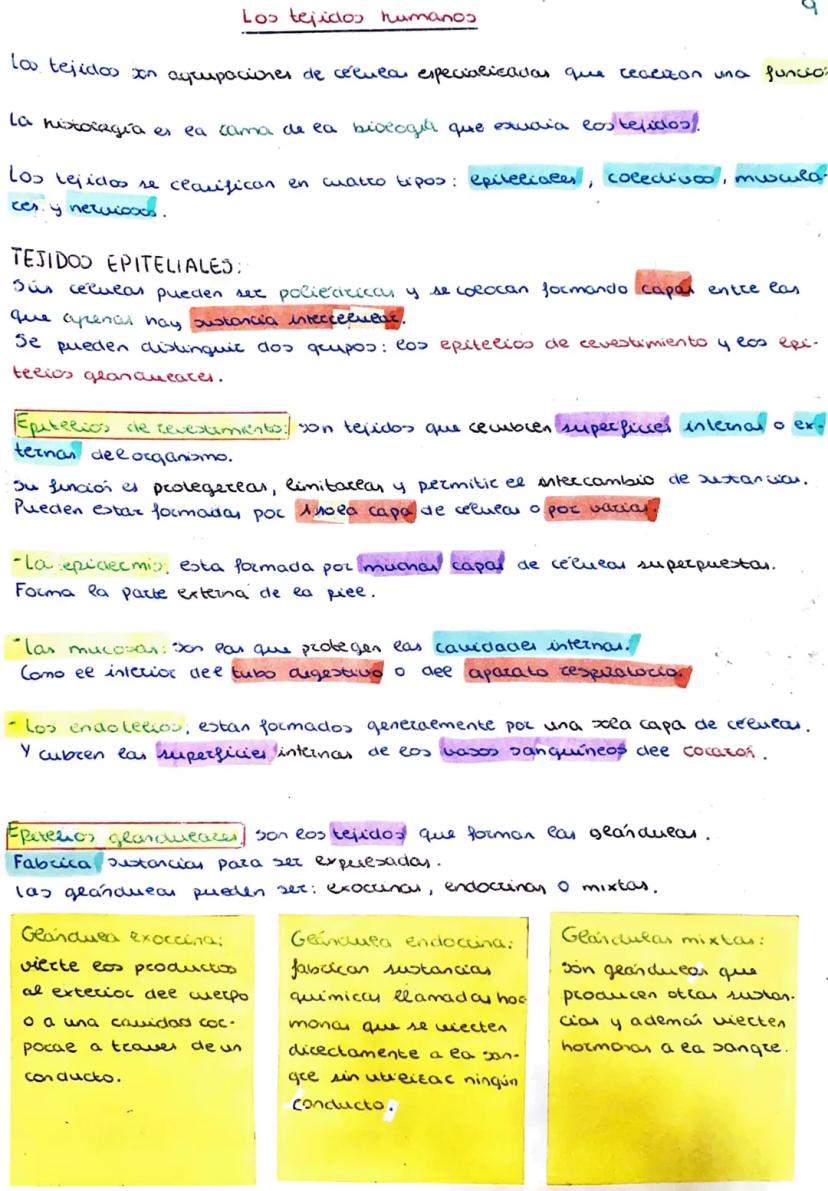 9
Los tejidos humanos
Los tejidos son agrupaciones de células especializadas que realizan una función
La histología es la rama de la biología que estudia los tejidos.
Los tejidos se clasifican en cuatro tipos: epiteliales, colectivos, muscula-
res y nerviosos.
TEJIDOS EPITELIALES:
Sus células pueden ser poliédricas y se colocan formando capas entre las
que apenas hay sustancia intercelular.
Se pueden distinguir dos grupos: los epitelios de revestimiento y los epi-
telios glandulares.
Epitelios de revestimiento: son tejidos que recubren superficies internas o ex-
ternas del organismo.
Su función es protegerlas, limitarlas y permitir el intercambio de sustancias.
Pueden estar formadas por 1 sola capa de células o por varias.
-La epidermis: esta formada por muchas capas de células superpuestas.
Forma la parte externa de la piel.
-las mucosas: son las que protegen las cavidades internas.
Como el interior del tubo digestivo o del aparato respiratorio.
-Los endotelios: estan formados generalmente por una sola capa de células.
Y cubren las superficies internas de los vasos sanguíneos del corazón.
Epitelios glandulares son los tejidos que forman las glándulas.
Fabrica sustancias para ser expulsadas.
las glándulas pueden ser: exocrinas, endocrinas o mixtas.
Glándula exocrina:
vierte los productos
al exterior del cuerpo
o a una cavidad cor-
poral a traves de un
conducto.
Glándula endocrina:
fabrican sustancias
químicas llamadas hor-
monas que se vierten
directamente a la san-
gre sin utilizar ningún
conducto.
Glándulas mixtas:
son glándulas que
producen otras sustan-
cias y además vierten
hormonas a la sangre.